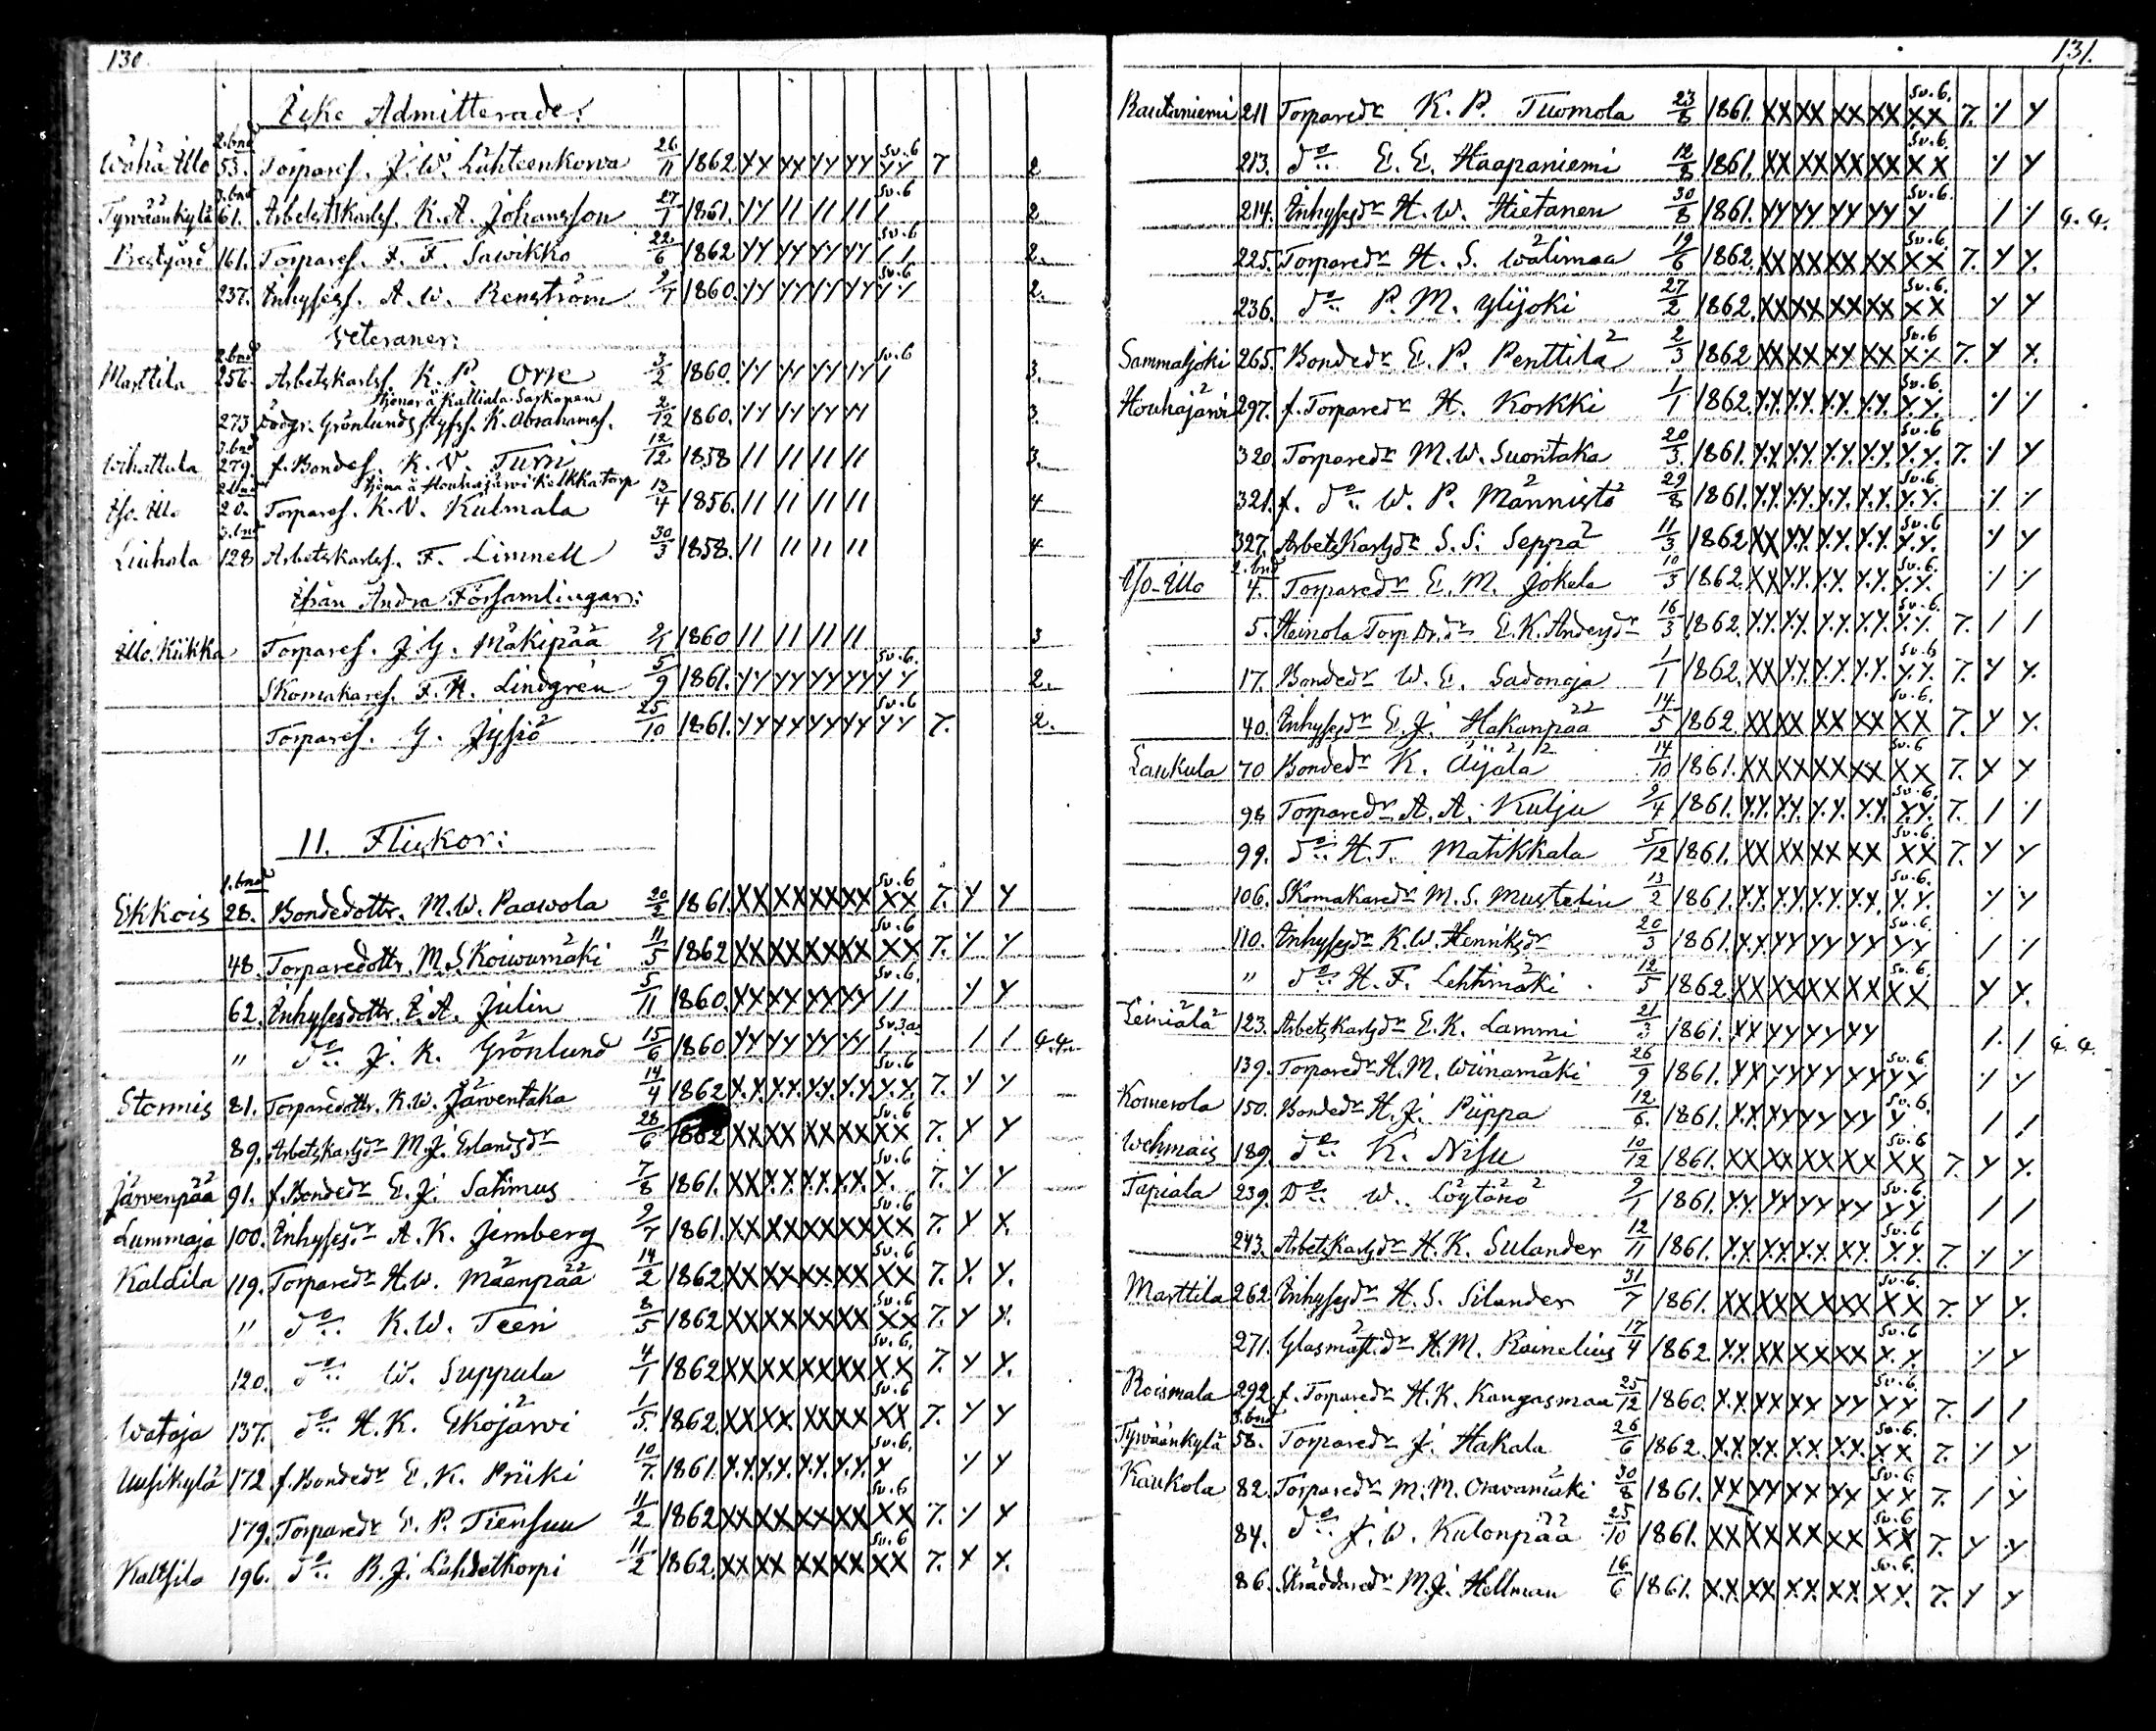 130.
Icke Admitterade:
2. bnd
Wähä Illo 53. Torpares. J. W. Lähteenkorva 26/11 1862 YY YY YY YY Sv. 6 YY 7 2
3. bnd
Tyrväänkylä 61. Arbetskarlss. K. A. Johansson 27/1 1861. YY 11 11 11 Sv. 6 1 2
Prestgård 161. Torpares. F. F. Sawikko 22/6 1862 YY YY YY YY Sv. 6 11 2.
237. Inhysess. A. W. Renström 2/7 1860. YY YY YY YY Sv. 6 YY 2.
Veteraner:
2. bnd
Marttila 256. Arbetskarlss. K. P. Orre 3/2 1860. YY YY YY YY Sv. 6 Y 3.
tjenar å Kalliala Saskanen
273 Grönlunds styfss. K. Abrahamss. 2/12 1860. YY YY YY YY 3.
3. bnd
Wihattula 279. f. Bondes. K. V. Turri 12/12 1858 11 11 11 11 3.
tjena å Houhajärvi Kelkka torp
2 bnd
Iso. Illo 20. Torpares. K. V. Kulmala 13/4 1856. 11 11 11 11 4
3. bnd
Liuhala 128 Arbetskarlss. F. Limnell 30/3 1858. 11 11 11 11 4
Ifrån Andra Församlingar:
Illo. Kiikka Torpares. J. G. Mäkipää 2/1 1860 11 11 11 11 3
Skomakares. F. H. Lindgrén 5/9 1861. YY YY YY YY Sv. 6. YY 2.
Torpares. G. Jysiö 25/10 1861. YY YY YY YY Sv. 6 YY 7. 2.
11. Flickor:
1. bnd
Ekkois 28. Bondedottr. M. W. Paawola 20/2 1861. XX XX XX XX Sv. 6 XX 7. Y Y
48. Torparedottr. M. S. Koiwumäki 11/5 1862 XX XX XX XX Sv. 6 XX 7. Y Y
62. Inhysesdottr. E. A. Julin 5/11 1860. XX XX XX YY Sv. 6. 11 Y Y
" do J. K. Grönlund 15/6 1860. YY YY YY YY Sv. 3a. 1 1 1 4. 4.
Stormis 81. Torparedottr. K. W. Järventaka 14/4 1862 Y.Y. Y.Y. Y.Y. Y.Y. Sv. 6 Y.Y. 7. Y Y
89. Arbetskarlsdr M. J. Erlandsdr 28/6 1862 XX XX XX XX Sv. 6 XX 7. Y Y
Järvenpää 91. f. Bondedr E. J. Satimus 7/8 1861. XX Y.Y. Y.Y. Y.Y. Sv. 6 Y. 7. Y Y
Lummaja 100. Inhysesdr A. K. Jernberg 2/7 1861. XX XX XX XX Sv. 6 XX 7. Y X.
Kaldila 119. Torparedr H. W. Mäenpää 14/2 1862 XX XX XX XX Sv. 6 XX 7. Y. Y.
" do K. W. Teeri 8/5 1862 XX XX XX XX Sv. 6 XX 7. Y Y.
120. do W. Suppula 4/1 1862 XX XX XX XX Sv. 6. XX 7. Y Y.
Wataja 137. do H. K. Ekojärvi 1/5. 1862. XX XX. XX XX Sv. 6 XX 7. Y Y
Uusikylä 172. f. Bondedr E. K. Priiki 10/7. 1861. Y.Y. Y.Y. Y.Y. Y.Y. Sv. 6. Y Y Y
179. Torparedr E. P. Tiensuu 11/2 1862 XX XX XX XX Sv. 6 XX 7. Y Y
Kaltsila 196. do R. J. Lähdetkorpi 11/2 1862. XX XX XX XX Sv. 6 XX 7. Y Y.
131.
Rautaniemi 211 Torparedr K. P. Tuomola 23/8 1861. XX XX XX XX Sv. 6. XX 7. Y Y
213. do E. E. Haapaniemi 12/8 1861. XX XX XX XX Sv. 6. XX Y Y
214. Inhysesdr H. W. Hietanen 30/8 1861. YY YY YY YY Sv. 6. Y 1 Y 4. 4.
225. Torparedr H. S. Wälimaa 19/6 1862. XX XX XX XX Sv. 6. XX 7. Y Y.
236. do P. M. Ylijoki 27/2 1862. XX XX XX XX Sv. 6. XX Y Y
Sammaljoki 265. Bondedr E. P. Penttilä 2/3 1862 XX XX XX XX Sv. 6 XY 7. Y Y.
Houhajärvi 297. f. Torparedr H. Korkki 1/1 1862. Y.Y. Y.Y. Y.Y. Y.Y. Sv. 6. Y.Y. Y Y
320. Torparedr M. W. Suontaka 20/3. 1861. Y.Y. Y.Y. Y.Y. Y.Y. Sv. 6 Y.Y. 7. Y Y
321. f. do W. P. Männistö 29/8 1861. Y.Y. Y.Y. Y.Y. Y.Y. Sv. 6. Y.Y. Y Y
327. Arbetskarlsdr S. S. Seppä 11/3 1862 XX Y.Y. Y.Y. Y.Y. Sv. 6 Y.Y. Y Y
2. bnd
Iso-Illo 4. Torparedr E. M. Jokela 10/3 1862. XX Y.Y. Y.Y. Y.Y. Sv. 6. Y.Y. Y Y
5. Heinola Torp. Dr. dr E. K. Andersdr 16/3 1862. Y.Y. Y.Y. Y.Y. Y.Y. Sv. 6. Y.Y. 7. 1 1
17. Bondedr W. E. Sadonoja 1/1 1862. XX Y.Y. Y.Y. Y.Y. Sv. 6 Y.Y. 7. Y Y.
40. Inhysesdr E. J. Hakanpää 14/5 1862 XX XX XX XX Sv. 6. XX 7. Y Y.
Laukula 70 Bondedr K. Äijälä 14/10 1861. XX XX XX XX Sv. 6 XX 7. Y Y
98 Torparedr A. A. Kulju 2/4 1861. Y.Y. Y.Y. Y.Y. Y.Y. Sv. 6. Y.Y. 7. 1 Y
99. do H. T. Matikkala 5/12 1861. XX XX XX XX Sv. 6. XX 7. Y Y
106. Skomakaredr M. S. Mustelin 13/2 1861. Y.Y. Y.Y. Y.Y. Y.Y. Sv. 6. Y.Y. Y Y
110. Inhysesdr K. W. Henriksdr 20/3 1861. YY YY YY YY Sv. 6. YY 1 Y
" do H. F. Lehtimäki 12/5 1862. XX XX XX XX Sv. 6. XX Y Y.
Leiniälä 123. Arbetskarlsdr E. K. Lammi 21/3 1861. YY YY YY YY 1. 1 4. 4.
139. Torparedr H. M. Wiinamäki 26/9 1861. YY YY YY YY Sv. 6. YY Y Y
Komerola 150. Bondedr H. J. Piippa 12/6. 1861. Y.Y. YY YY YY Sv. 6. Y 1 1
Wehmais 189. do K. Nisu 10/12 1861. XX XX XX XX Sv. 6 XX 7. Y Y.
Tapiala 239. Do W. Löytänö 2/1 1861. YY. YY YY YY Sv. 6. YY 1 1
243. Arbetskarlsdr H. K. Sulander 12/11 1861. Y.Y. Y.Y. Y.Y. YY. Sv. 6 Y.Y. 7. Y Y
Marttila 262. Inhysesdr H. S. Silander 31/7 1861. XX XX XX XX Sv. 6. XX 7. Y Y.
271. Glasmäst. dr H. M. Roinelius 17/4 1862. Y.Y. XX XX XX Sv. 6 Y.Y. Y Y
Roismala 292. f. Torparedr H. K. Kangasmaa 25/12 1860. Y.Y. YY YY YY Sv. 6. YY 7. 1 1
3. bnd
Tyrväänkylä 58. Torparedr J. Hakala 26/6 1862. Y.Y. Y.Y. XX XX Sv. 6. XX 7. Y Y
Kaukola 82. Torparedr M. M. Oravamäki 30/8 1861. YY YY XX YY Sv. 6. XX 7. 1 Y
84. do J. W. Kulonpää 25/10 1861. XX XX XX XX Sv. 6 XX 7. Y Y
86. Skräddaredr M. J. Hellman 16/6 1861. XX XX XX XX. Sv. 6. XX. 7. Y Y